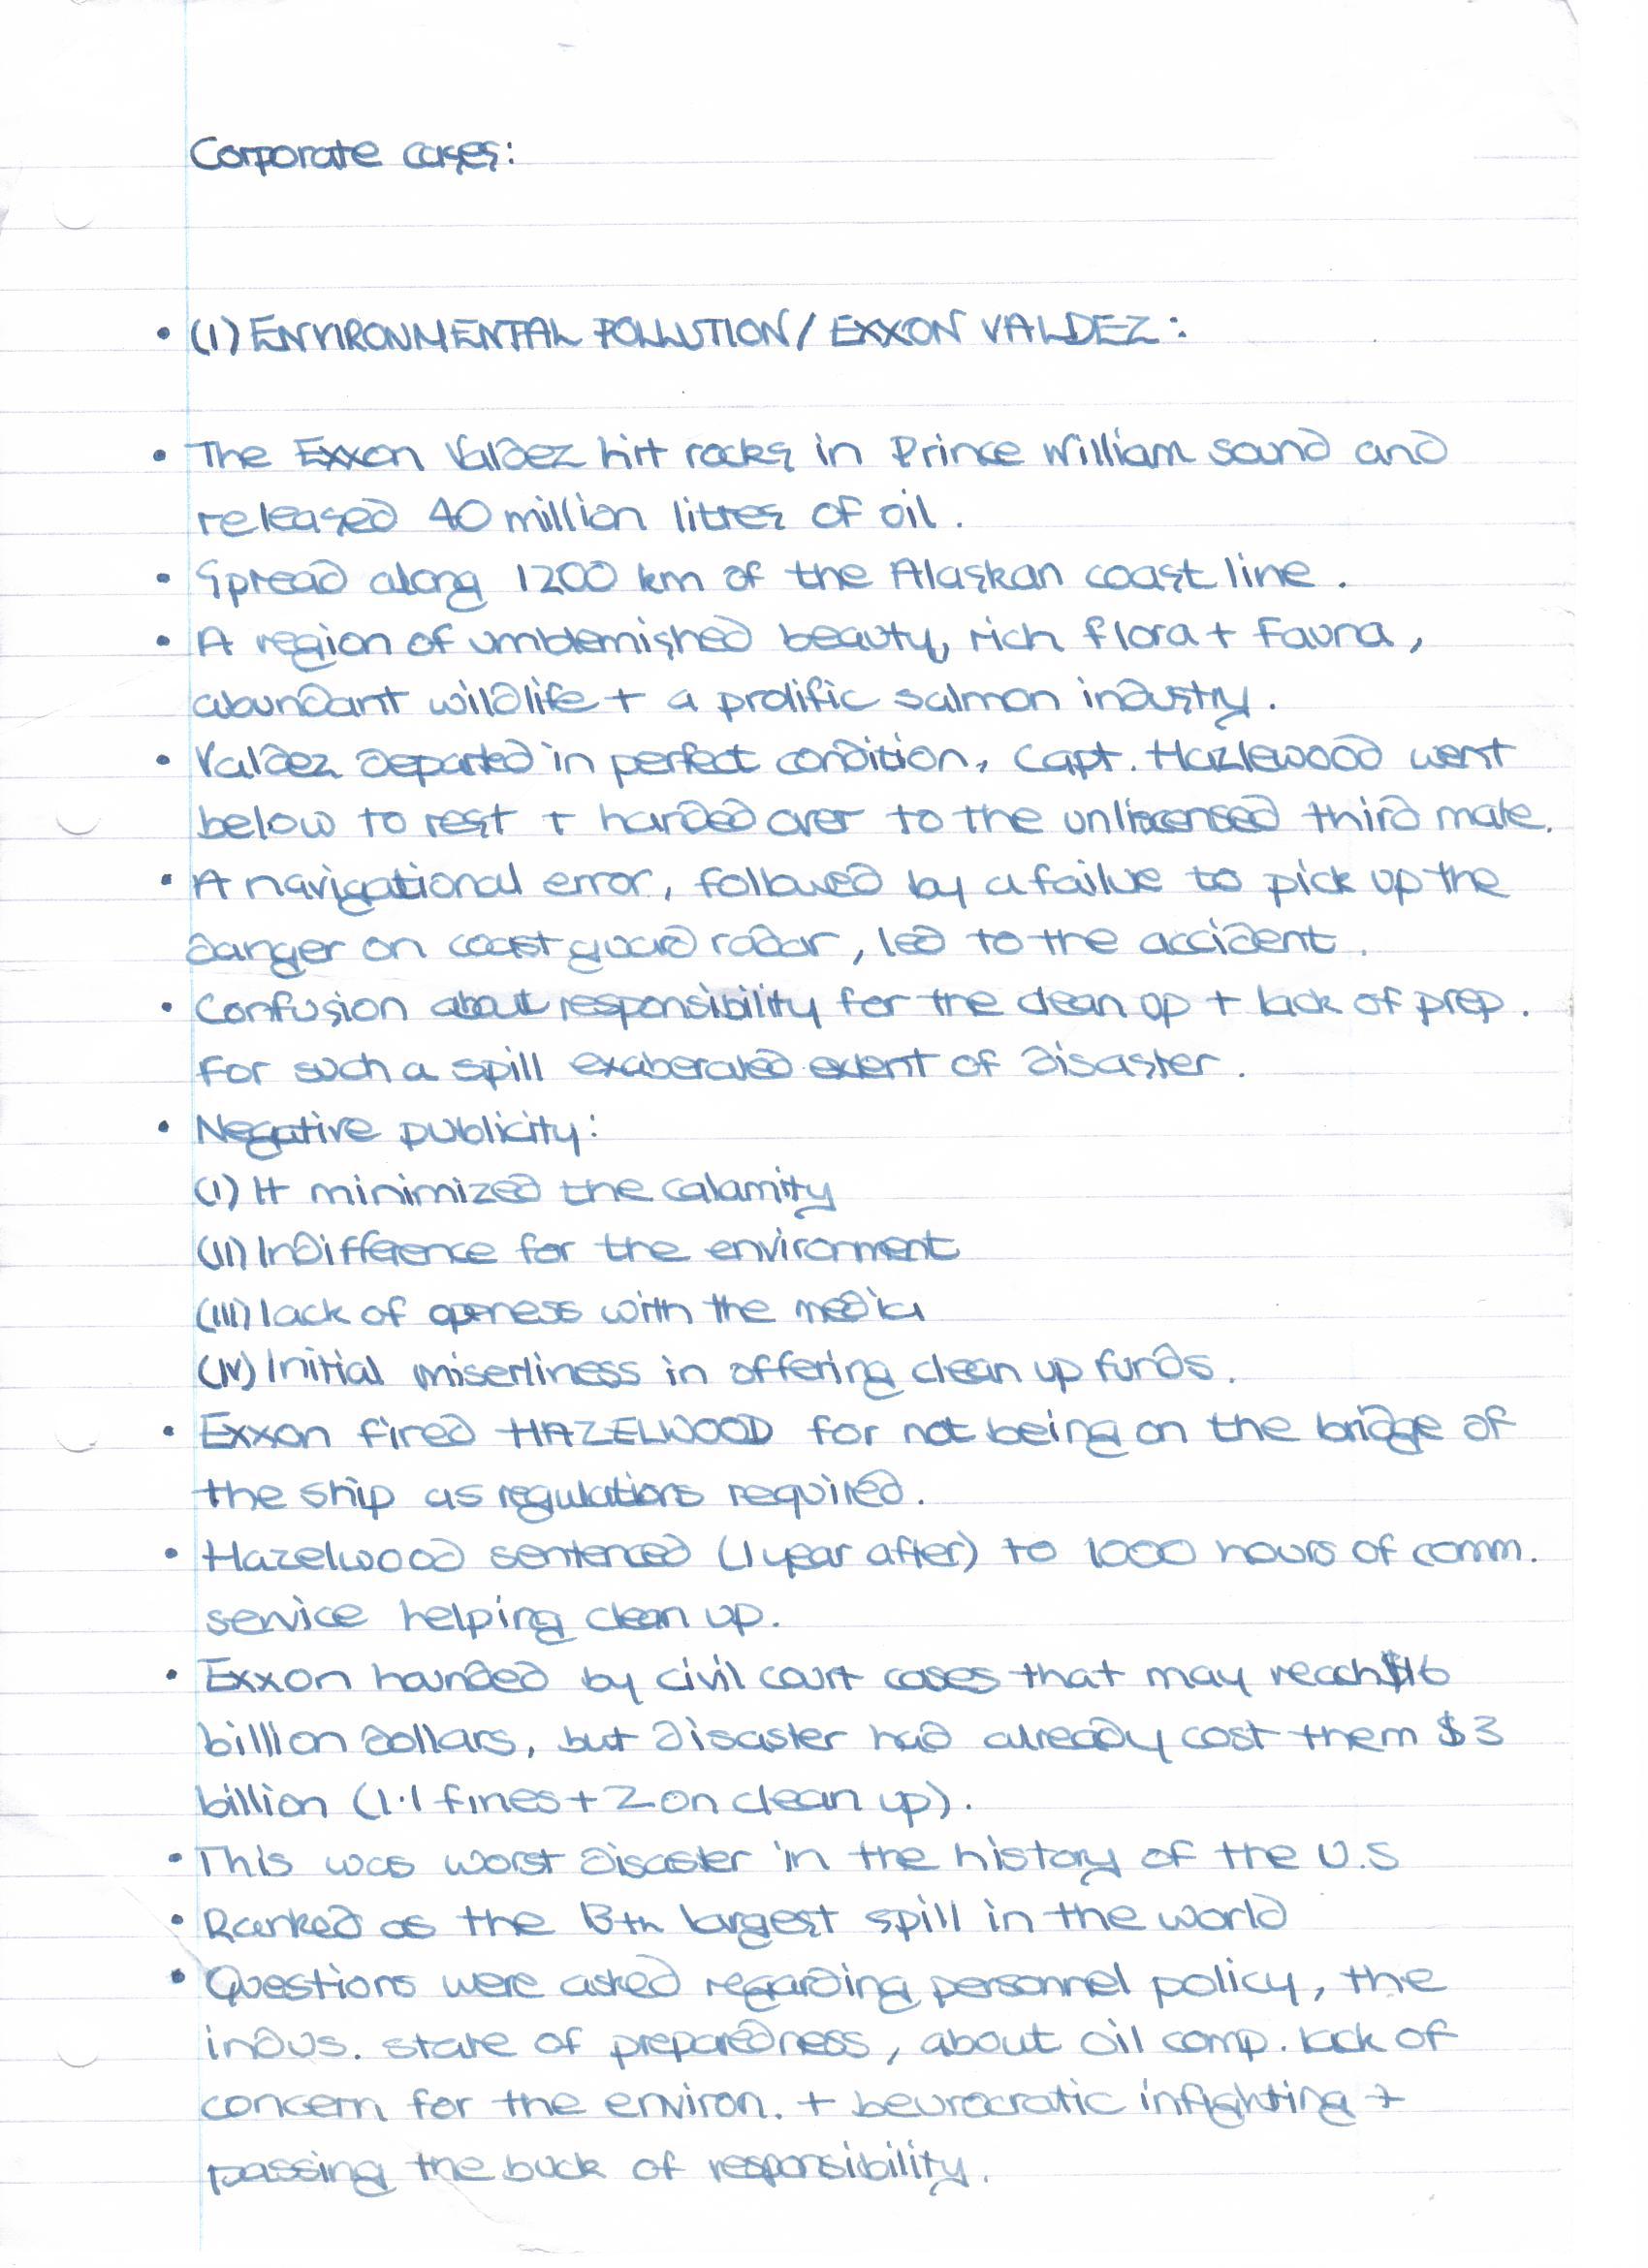 Corporate cases:
• (1) ENVIRONMENTAL POLLUTION/ EXXON VALDEZ:
• The Exxon Valdez hit rocks in Prince William sound and
released 40 million litres of oil.
• Spread along 1200 km of the Alaskan coast line.
• A region of umblemished beauty, rich flora + fauna,
abundant wildlife + a prolific salmon industry.
• Valdez departed in perfect condition, Capt. Hazlewood went
below to rest + handed over to the unliscensed third mate.
• A navigational error, followed by a failue to pick up the
danger on coast guard radar, led to the accident.
• Confusion about responsibility for the clean up + lack of prep.
for such a spill exaberated extent of disaster.
• Negative publicity:
(I) It minimized the calamity
(II) Indifference for the environment
(III) lack of openess with the media
(IV) Initial miserliness in offering clean up funds.
• Exxon fired HAZELWOOD for not being on the bridge of
the ship as regulations required.
• Hazelwood sentenced (1 year after) to 1000 hours of comm.
service helping clean up.
• Exxon hounded by civil court cases that may reach $16
billion dollars, but disaster had already cost them $3
billion (1.1 fines + 2 on clean up).
• This was worst disaster in the history of the U.S
• Ranked as the 13th largest spill in the world
• Questions were asked regarding personnel policy, the
indus. state of preparedness, about oil comp. lack of
concern for the environ. + beurocratic infighting +
passing the buck of responsibility.